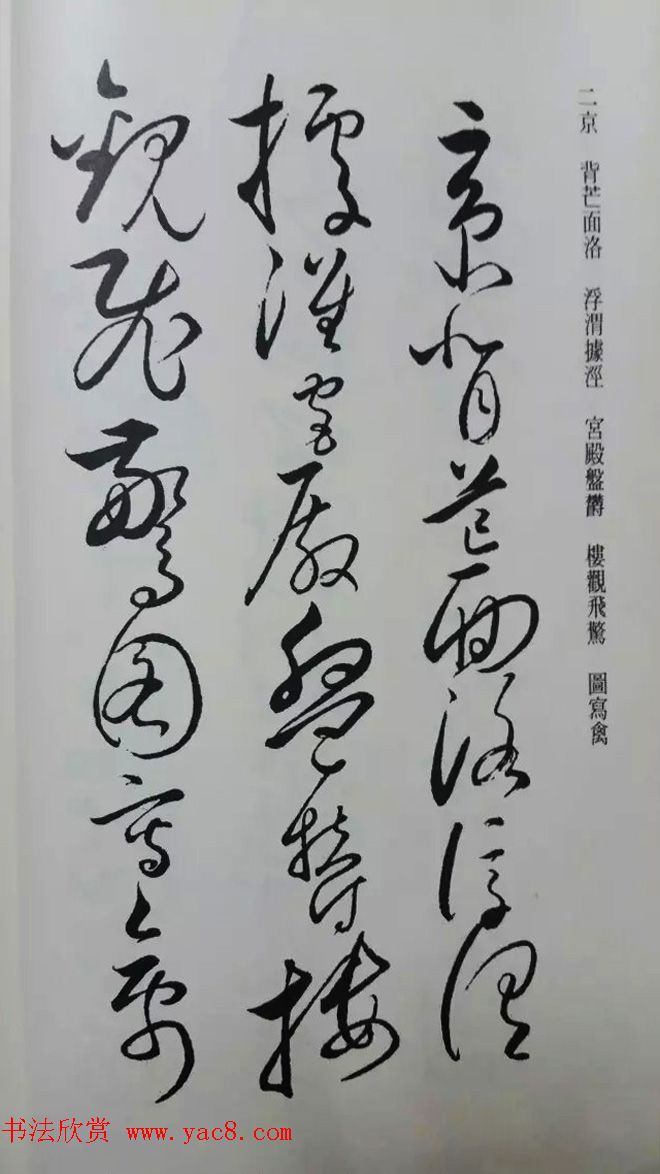 二京　背芒面洛　浮渭據涇　宮殿盤鬱　樓觀飛驚　圖寫禽
京背芒面洛浮渭
據涇宮殿盤鬱樓
觀飛驚圖寫禽
书法欣赏 www.yac8.com